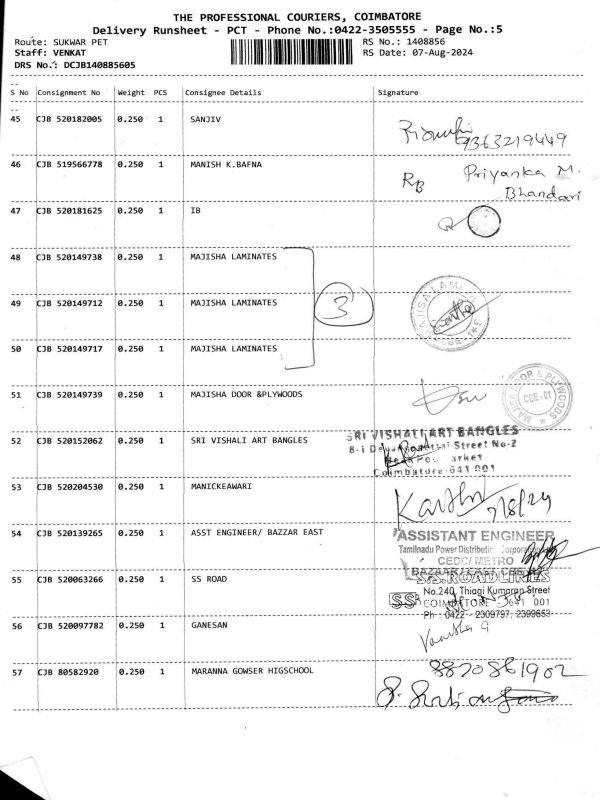 THE PROFESSIONAL COURIERS, COIMBATORE
Delivery Runsheet - PCT - Phone No.:0422-3505555 - Page No.:5
Route: SUKWAR PET RS No.: 1408856
Staff: VENKAT RS Date: 07-Aug-2024
DRS No.: DCJB140885605
S No Consignment No Weight PCS Consignee Details Signature
45 CJB 520182005 0.250 1 SANJIV
9363219449
46 CJB 519566778 0.250 1 MANISH K.BAFNA
RB Priyanka M.
Bhandari
47 CJB 520181625 0.250 1 IB
48 CJB 520149738 0.250 1 MAJISHA LAMINATES
49 CJB 520149712 0.250 1 MAJISHA LAMINATES
3
50 CJB 520149717 0.250 1 MAJISHA LAMINATES
51 CJB 520149739 0.250 1 MAJISHA DOOR &PLYWOODS
MAJISHA DOOR & PLYWOODS
CBE-01
52 CJB 520152062 0.250 1 SRI VISHALI ART BANGLES
SRI VISHALI ART BANGLES
Street No-2
Coimbatore-641 001
53 CJB 520204530 0.250 1 MANICKEAWARI
7/8/24
54 CJB 520139265 0.250 1 ASST ENGINEER/ BAZZAR EAST
ASSISTANT ENGINEER
Tamilnadu Power Distribution Corporation
CEDC/METRO
55 CJB 520063266 0.250 1 SS ROAD
S.S.ROADLINES
No.240, Thiagi Kumaran Street
SS COIMBATORE - 641 001
Ph : 0422 - 2309797, 2399653
56 CJB 520097782 0.250 1 GANESAN
57 CJB 80582920 0.250 1 MARANNA GOWSER HIGSCHOOL
8870861902